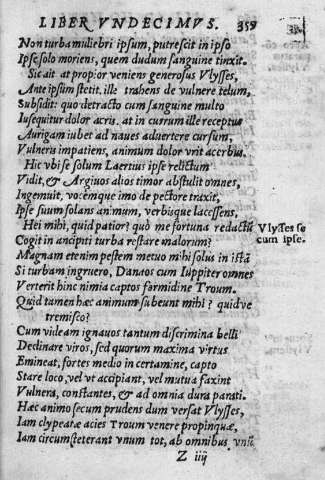 LIBER VNDECIMVS. 359
Non turba muliebri ipsum, putrescit in ipso
Ipse solo moriens, quem dudum sanguine tinxit.
Sic ait at propior veniens generosus Vlysses,
Ante ipsum stetit. ille trahens de vulnere telum,
Subsidit: quo detracto cum sanguine multo
Iusequitur dolor acris. at in currum ille receptus
Aurigam iubet ad naues aduertere cursum,
Vulneris impatiens, animum dolor vrit acerbus.
Hic vbi se solum Laertius ipse relictum
Vidit, & Argiuos alios timor abstulit omnes,
Ingemuit, vocemque imo de pectore traxit,
Ipse suum solans animum, verbisque lacessens,
Hei mihi, quid patior? quò me fortuna redactū
Cogit in ancipiti turba restare malorum?
Vlysses se
cum ipse.
Magnam etenim pestem metuo mihi solus in istā
Si turbam ingruero, Danaos cum Iuppiter omnes
Verterit hinc nimia captos formidine Troum.
Quid tamen hæc animum subeunt mihi? quidve
tremisco?
Cum videam ignauos tantum discrimina belli
Declinare viros, sed quorum maxima virtus
Emineat, fortes medio in certamine, capto
Stare loco, vel vt accipiant, vel mutua faxint
Vulnera, constantes, & ad omnia dura parati.
Hæc animo secum prudens dum versat Vlysses,
Iam clypeatæ acies Troum venere propinquæ,
Iam circumsteterant vnum tot, ab omnibus vnū
Z iiij